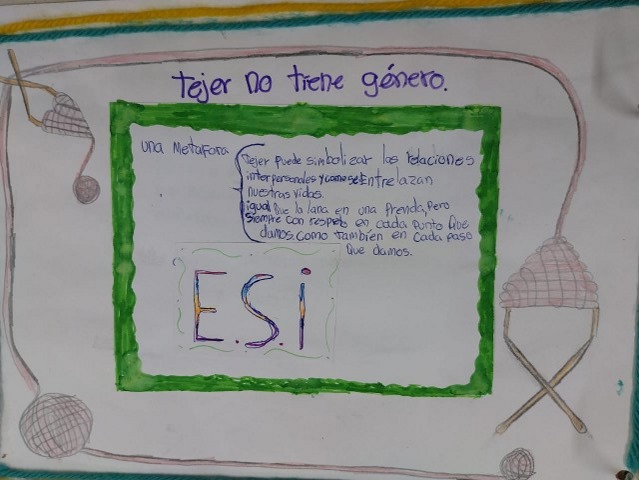 Tejer no tiene género.
una Metafora
Tejer puede simbolizar las relaciones
interpersonales y como se Entrelazan
nuestras vidas.
igual Que la lana en una Prenda, Pero
Siempre con respeto en cada Punto Que
damos. Como también en cada paso
Que damos.
E.S.I